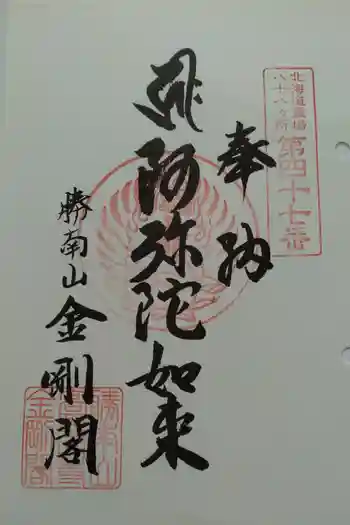 北海道霊場
八十八ヶ所
第四十七番
奉納
阿弥陀如来
勝南山
金剛閣